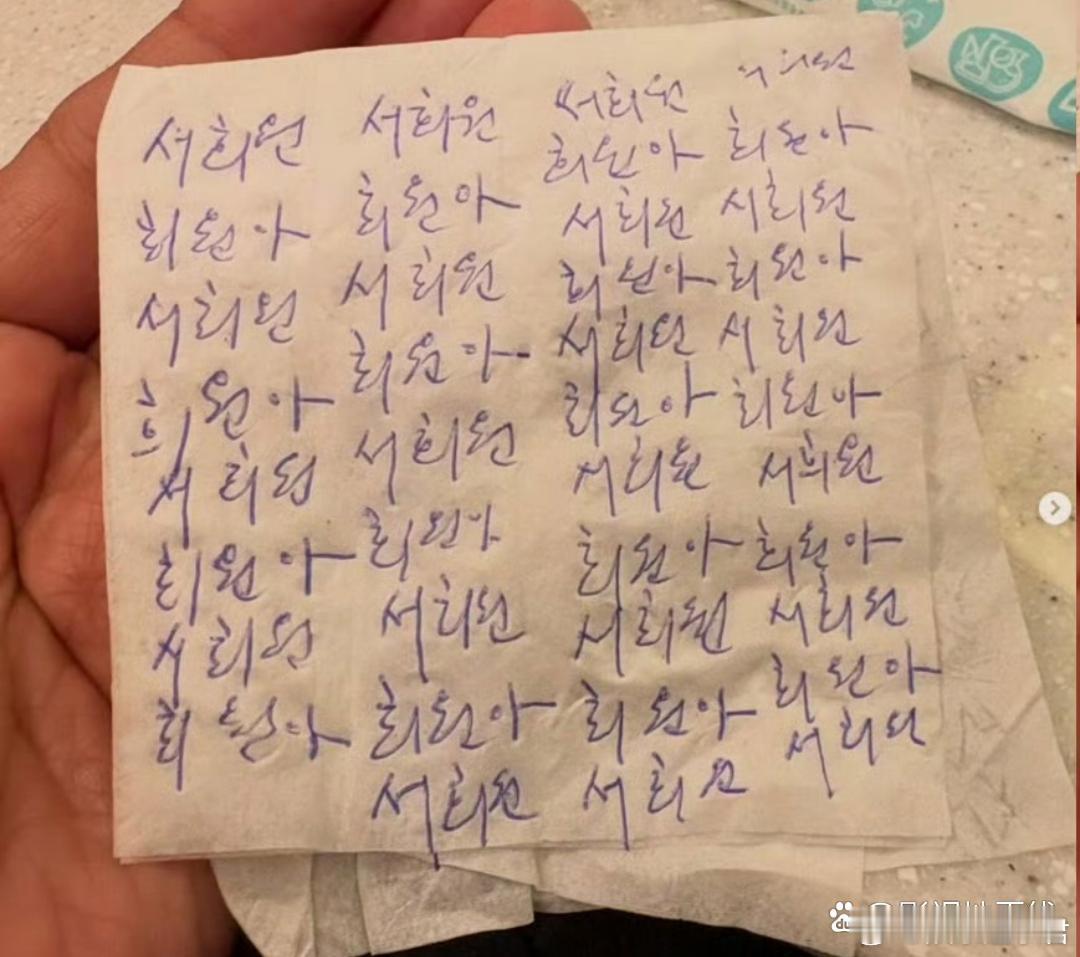 서희원
희원아
서희원
희원아
서희원
희원아
서희원
희원아
서희원
희원아
서희원
희원아
서희원
희원아
서희원
희원아
서희원
서희원
희원아
서희원
희원아
서희원
희원아
서희원
희원아
서희원
희원아
서희원
희원아
서희원
희원아
서희원
희원아
서희원
희원아
서희원
희원아
서희원
du